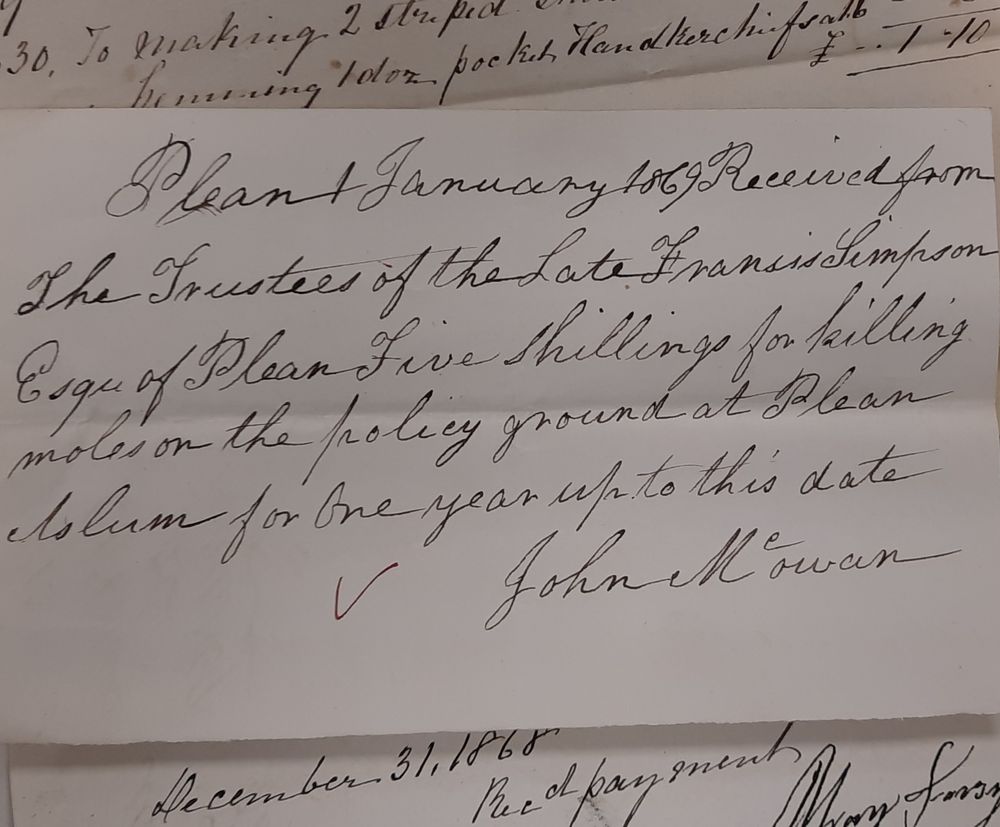 30. To making 2 striped
hemming 1 doz pocket Handkerchiefs at 6
£ - . 1 . 10
Plean 1 January 1869 Received from
The Trustees of the Late Fransis Simpson
Esqu of Plean Five Shillings for killing
moles on the policy ground at Plean
Aslum for One year up to this date
John Mcowan
December 31, 1868
Recd payment
Mary